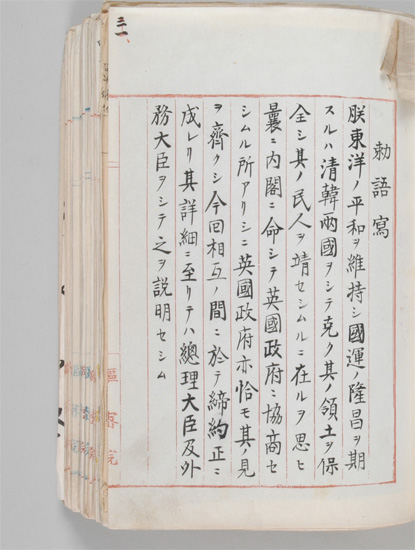 三一
勅語寫
朕東洋ノ平和ヲ維持シ國運ノ隆昌ヲ期
スルハ清韓兩國ヲシテ克ク其ノ領土ヲ保
全シ其ノ民人ヲ靖セシムルニ在ルヲ思ヒ
曩ニ内閣ニ命シテ英國政府ニ協商セ
シムル所アリシニ英國政府亦恰モ其ノ見
ヲ齊クシ今回相互ノ間ニ於テ締約正ニ
成レリ其詳細ニ至リテハ總理大臣及外
務大臣ヲシテ之ヲ説明セシム
樞密院